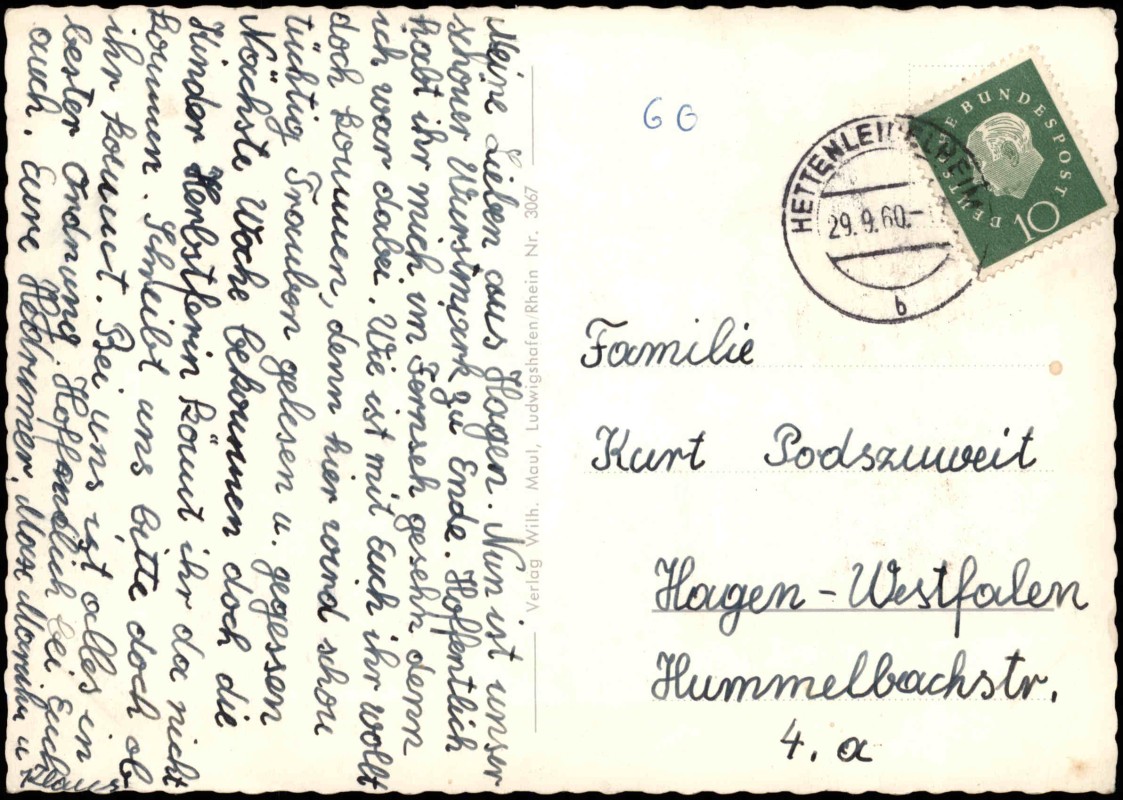 Meine Lieben aus Hagen. Nun ist unser
schöner Wurstmark zu Ende. Hoffentlich
habt ihr mich im Fernseh gesehn denn
ich war dabei. Wie ist mit Euch ihr wollt
doch kommen, denn hier wird schon
tüchtig Trauben gelesen u. gegessen
Nächste Woche bekommen doch die
Kinder Herbstferin könnt ihr da nicht
kommen. Schreibt uns bitte doch ob
ihr kommt. Bei uns ist alles in
bester Ordnung. Hoffendlich bei Euch
auch. Eure Hedr Max u
Klaus
Verlag Wilh. Maul, Ludwigshafen/Rhein Nr. 3067
60
HETTENLEIDELHEIM
29.9.60.-
b
DEUTSCHE BUNDESPOST
10
Familie
Kurt Podszuweit
Hagen-Westfalen
Hummelbachstr.
4. a